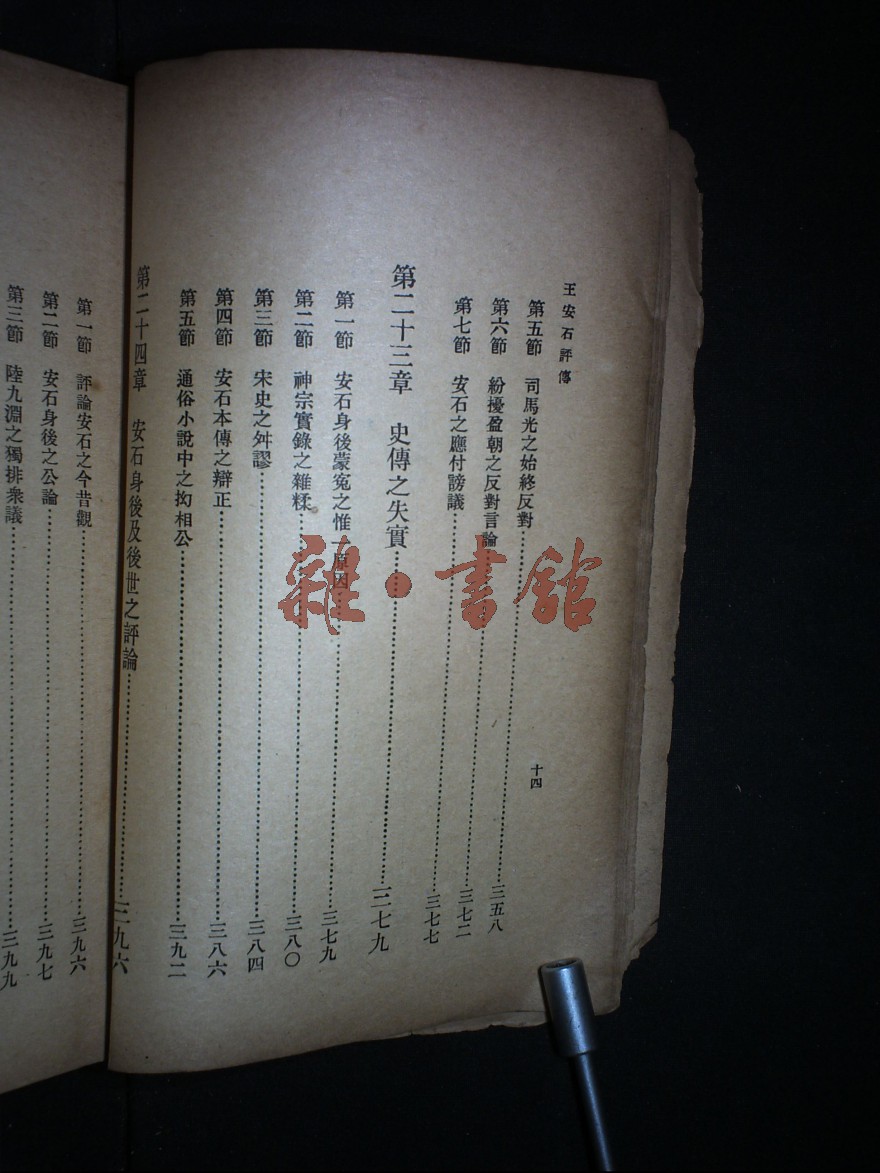 王安石評傳
十四
第五節 司馬光之始終反對……三五八
第六節 紛擾盈朝之反對言論……三七二
第七節 安石之應付謗議……三七七
第二十三章 史傳之失實……三七九
第一節 安石身後蒙冤之惟一原因……三七九
第二節 神宗實錄之雜糅……三八〇
第三節 宋史之舛謬……三八四
第四節 安石本傳之辯正……三八六
第五節 通俗小說中之拗相公……三九二
第二十四章 安石身後及後世之評論……三九六
第一節 評論安石之今昔觀……三九六
第二節 安石身後之公論……三九七
第三節 陸九淵之獨排衆議……三九九
雜·書館